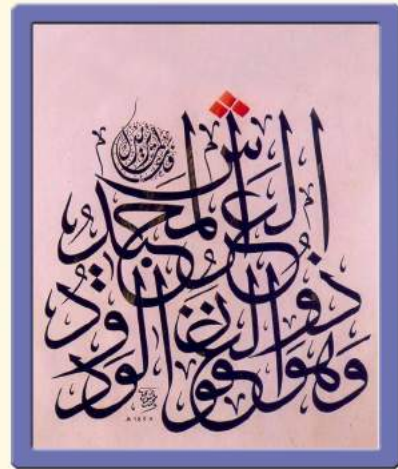 وَهُوَ الغَفُورُ الوَدُودُ
ذُو العَرْشِ المَجِيدُ